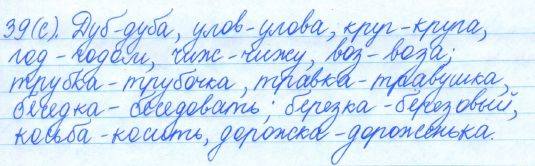 39(с). Дуб-дуба, улов-улова, круг-круга,
год-годом, чиж-чижу, воз-воза;
трубка-трубочка, травка-травушка,
беседка-беседовать; березка-березовый,
косьба-косить, дорожка-дороженька.